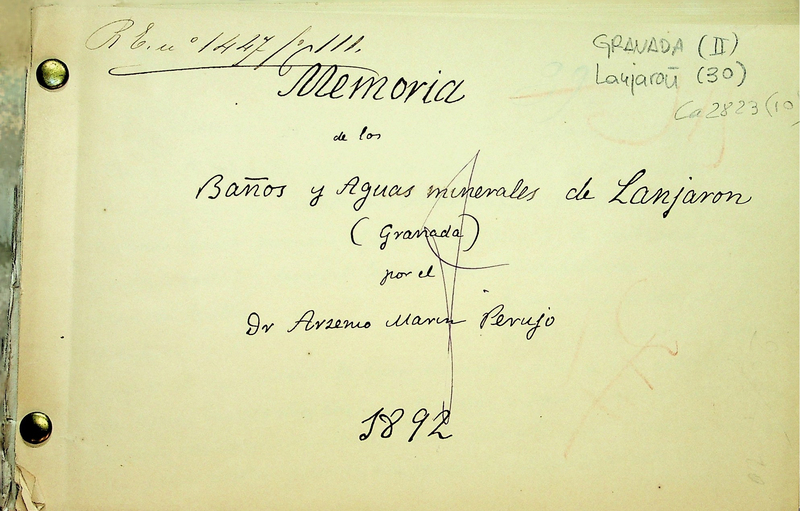 R.E. nº 1447 fº 111.
GRANADA (II)
Lanjarón (30)
Ca 2823 (10)
Memoria
de los
Baños y Aguas minerales de Lanjaron
(Granada)
por el
Dr Arsenio Marin Perujo
1892